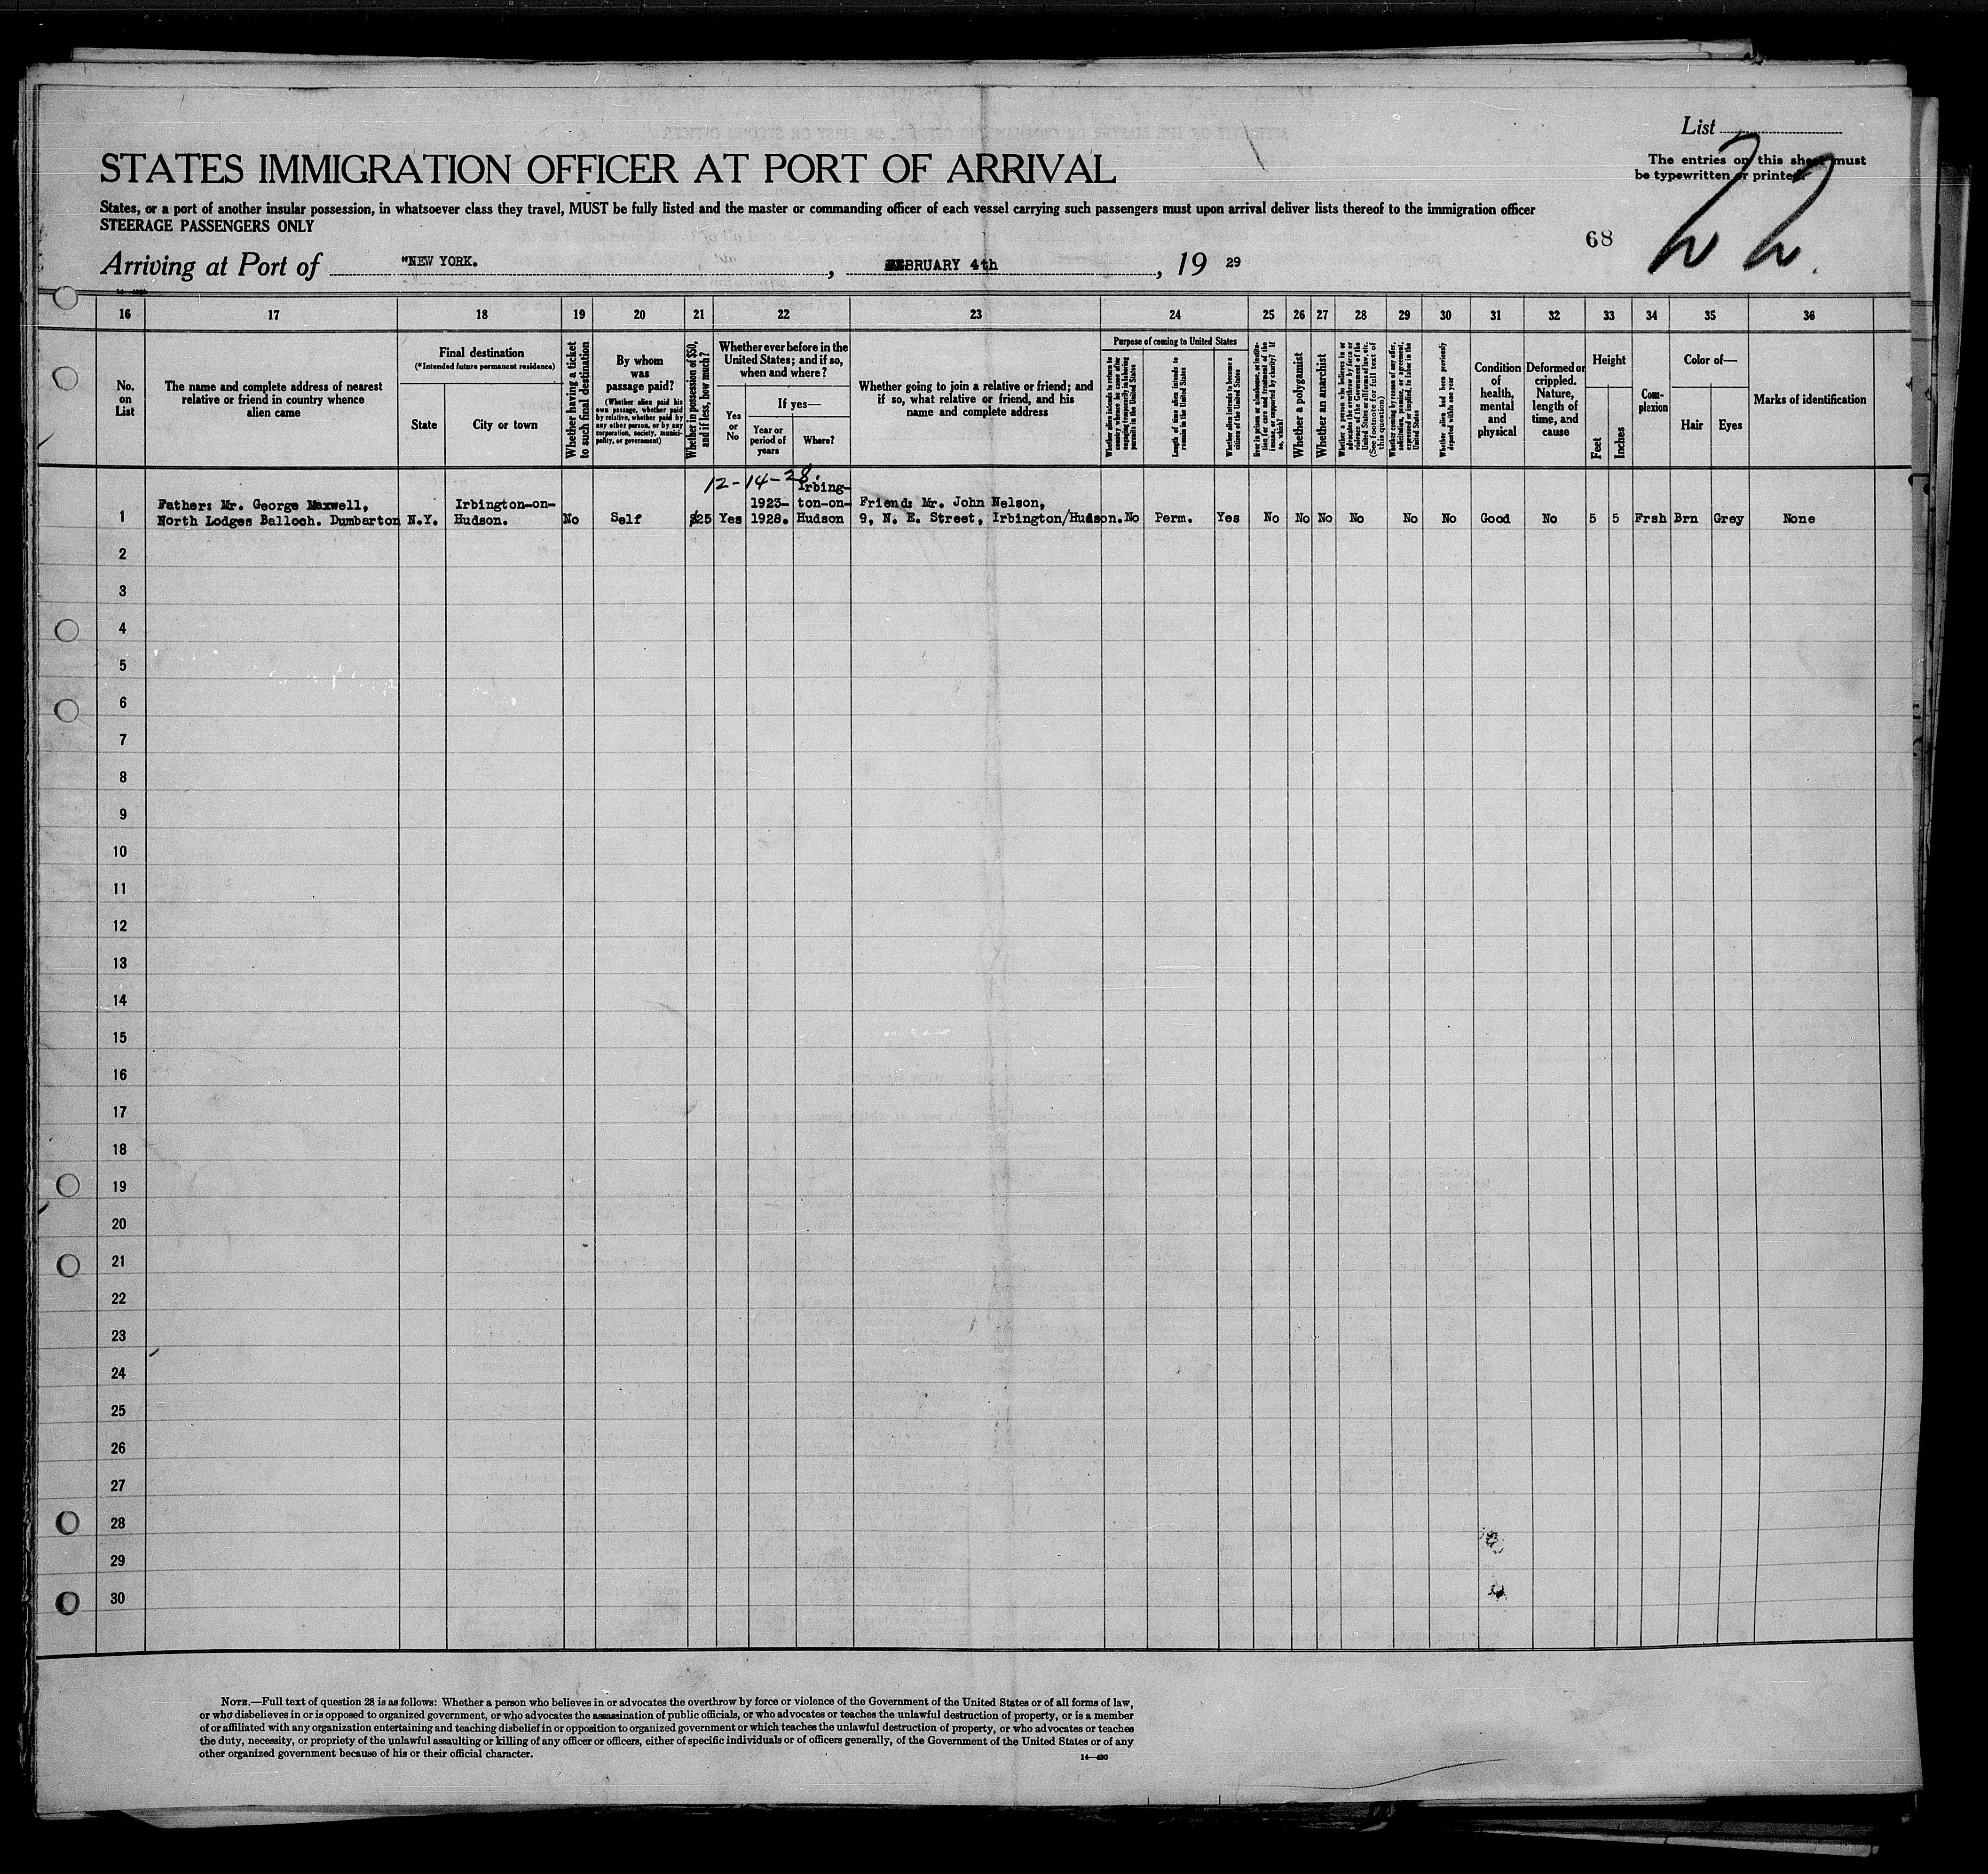 List
The entries on this sheet must
be typewritten or printed.
STATES IMMIGRATION OFFICER AT PORT OF ARRIVAL
States, or a port of another insular possession, in whatsoever class they travel, MUST be fully listed and the master or commanding officer of each vessel carrying such passengers must upon arrival deliver lists thereof to the immigration officer
STEERAGE PASSENGERS ONLY
68
Arriving at Port of "NEW YORK. , FEBRUARY 4th , 19 29
16 17 18 19 20 21 22 23 24 25 26 27 28 29 30 31 32 33 34 35 36
No. on List
The name and complete address of nearest relative or friend in country whence alien came
Final destination
(*Intended future permanent residence)
State
City or town
Whether having a ticket to such final destination
By whom was passage paid?
(Whether alien paid his own passage, whether paid by relative, whether paid by any other person, or by any corporation, society, municipality, or government)
Whether in possession of $50, and if less, how much?
Whether ever before in the United States; and if so, when and where?
Yes or No
If yes—
Year or period of years
Where?
Whether going to join a relative or friend; and if so, what relative or friend, and his name and complete address
Purpose of coming to United States
Whether alien intends to return to country whence he came after engaging temporarily in laboring pursuits in the United States
Length of time alien intends to remain in the United States
Whether alien intends to become a citizen of the United States
Ever in prison or almshouse, or institution for care and treatment of the insane, or supported by charity? If so, which?
Whether a polygamist
Whether an anarchist
Whether a person who believes in or advocates the overthrow by force or violence of the Government of the United States or all forms of law, etc. (See footnote for full text of this question)
Whether coming by reason of any offer, solicitation, promise, or agreement, expressed or implied, to labor in the United States
Whether alien had been previously deported within one year
Condition of health, mental and physical
Deformed or crippled. Nature, length of time, and cause
Height
Feet
Inches
Complexion
Color of—
Hair
Eyes
Marks of identification
12-14-28.
1 Father: Mr. George Maxwell, North Lodges Balloch. Dumbarton N.Y. Irbington-on-Hudson. No Self $25 Yes 1923-1928. Irbington-on-Hudson Friend: Mr. John Nelson, 9, N. E. Street, Irbington/Hudson. No Perm. Yes No No No No No No Good No 5 5 Frsh Brn Grey None
2
3
4
5
6
7
8
9
10
11
12
13
14
15
16
17
18
19
20
21
22
23
24
25
26
27
28
29
30
NOTE.—Full text of question 28 is as follows: Whether a person who believes in or advocates the overthrow by force or violence of the Government of the United States or of all forms of law,
or who disbelieves in or is opposed to organized government, or who advocates the assassination of public officials, or who advocates or teaches the unlawful destruction of property, or is a member
of or affiliated with any organization entertaining and teaching disbelief in or opposition to organized government or which teaches the unlawful destruction of property, or who advocates or teaches
the duty, necessity, or propriety of the unlawful assaulting or killing of any officer or officers, either of specific individuals or of officers generally, of the Government of the United States or of any
other organized government because of his or their official character.
14—430